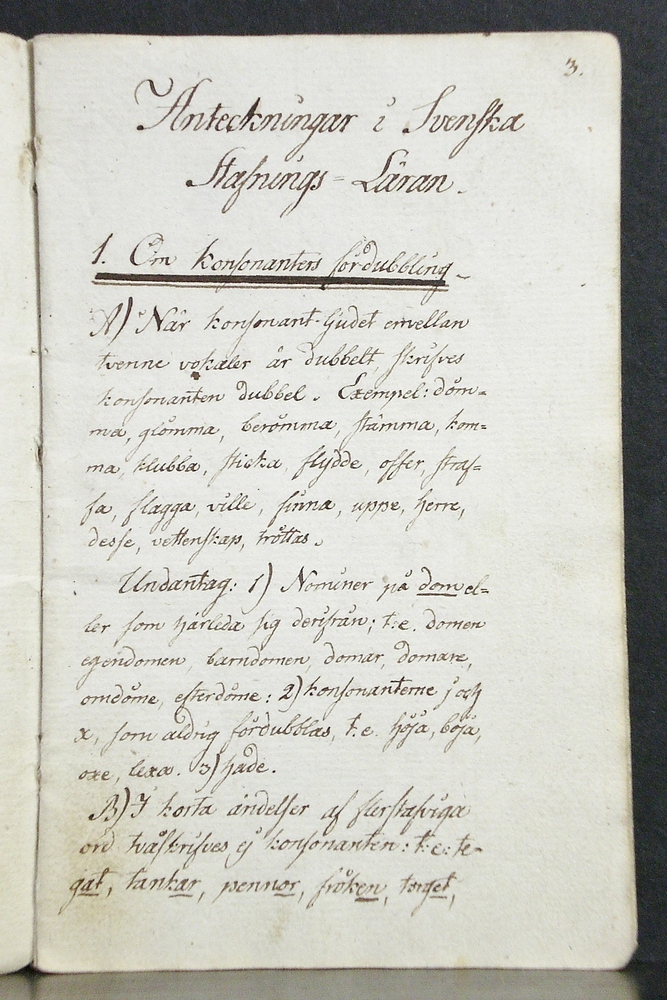 3.
Anteckningar i Svenska
Stafnings-Läran.
1. Om konsonanters fördubbling.
A) När konsonant-ljudet emellan
tvenne vokaler är dubbelt, skrifves
konsonanten dubbel. Exempel: döm=
ma, glömma, berömma, stämma, kom=
ma, klubba, sticka, flydde, offer, straf=
fa, flagga, ville, finna, uppe, herre,
desse, vettenskap, tröttas.
Undantag: 1) Nominer på dom el=
ler som härleda sig derifrån; t.e. domen
egendomen, barndomen, domar, domare,
omdöme, efterdöme: 2) konsonanterne j och
x, som aldrig fördubblas, t.e. höja, böja,
oxe, lexa. 3) hade.
B) I korta ändelser af flerstafviga
ord tvåskrifves ej konsonanten: t.e: te-
gat, tankar, pennor, fröken, torget,